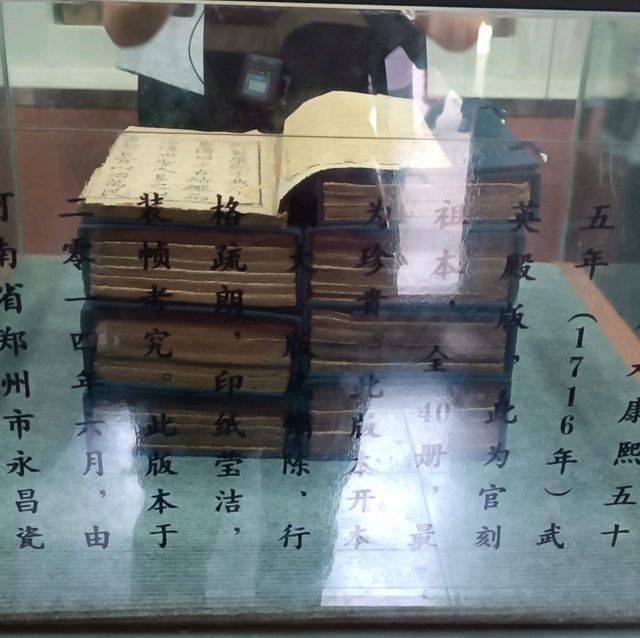 康熙五十
五年（1716年）武
英殿版，此为官刻
祖本，全40册，最
为珍贵。此版本开本
大版陈、行
格疏朗，印纸莹洁，
装帧考究。此版本于
二零一四年六月，由
南省郑州市永昌瓷